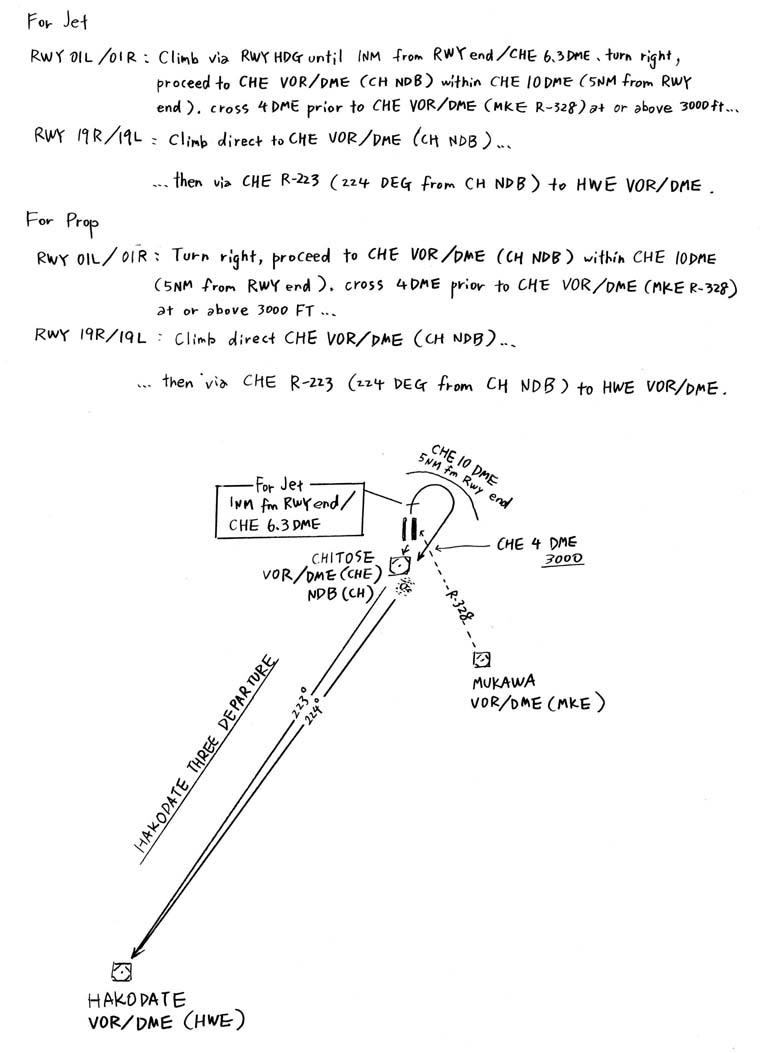 For Jet
RWY 01L/01R : Climb via RWY HDG until 1NM from RWY end/CHE 6.3DME, turn right,
proceed to CHE VOR/DME (CH NDB) within CHE 10DME (5NM from RWY
end), cross 4DME prior to CHE VOR/DME (MKE R-328) at or above 3000ft...
RWY 19R/19L : Climb direct to CHE VOR/DME (CH NDB)...
...then via CHE R-223 (224 DEG from CH NDB) to HWE VOR/DME.
For Prop
RWY 01L/01R : Turn right, proceed to CHE VOR/DME (CH NDB) within CHE 10DME
(5NM from RWY end), cross 4DME prior to CHE VOR/DME (MKE R-328)
at or above 3000 FT...
RWY 19R/19L : Climb direct CHE VOR/DME (CH NDB)...
...then via CHE R-223 (224 DEG from CH NDB) to HWE VOR/DME.
CHE 10 DME
5NM fm Rwy end
For Jet
1NM fm RWY end/
CHE 6.3DME
CHE 4 DME
3000
CHITOSE
VOR/DME (CHE)
NDB (CH)
R-328
MUKAWA
VOR/DME (MKE)
223°
224°
HAKODATE THREE DEPARTURE
HAKODATE
VOR/DME (HWE)